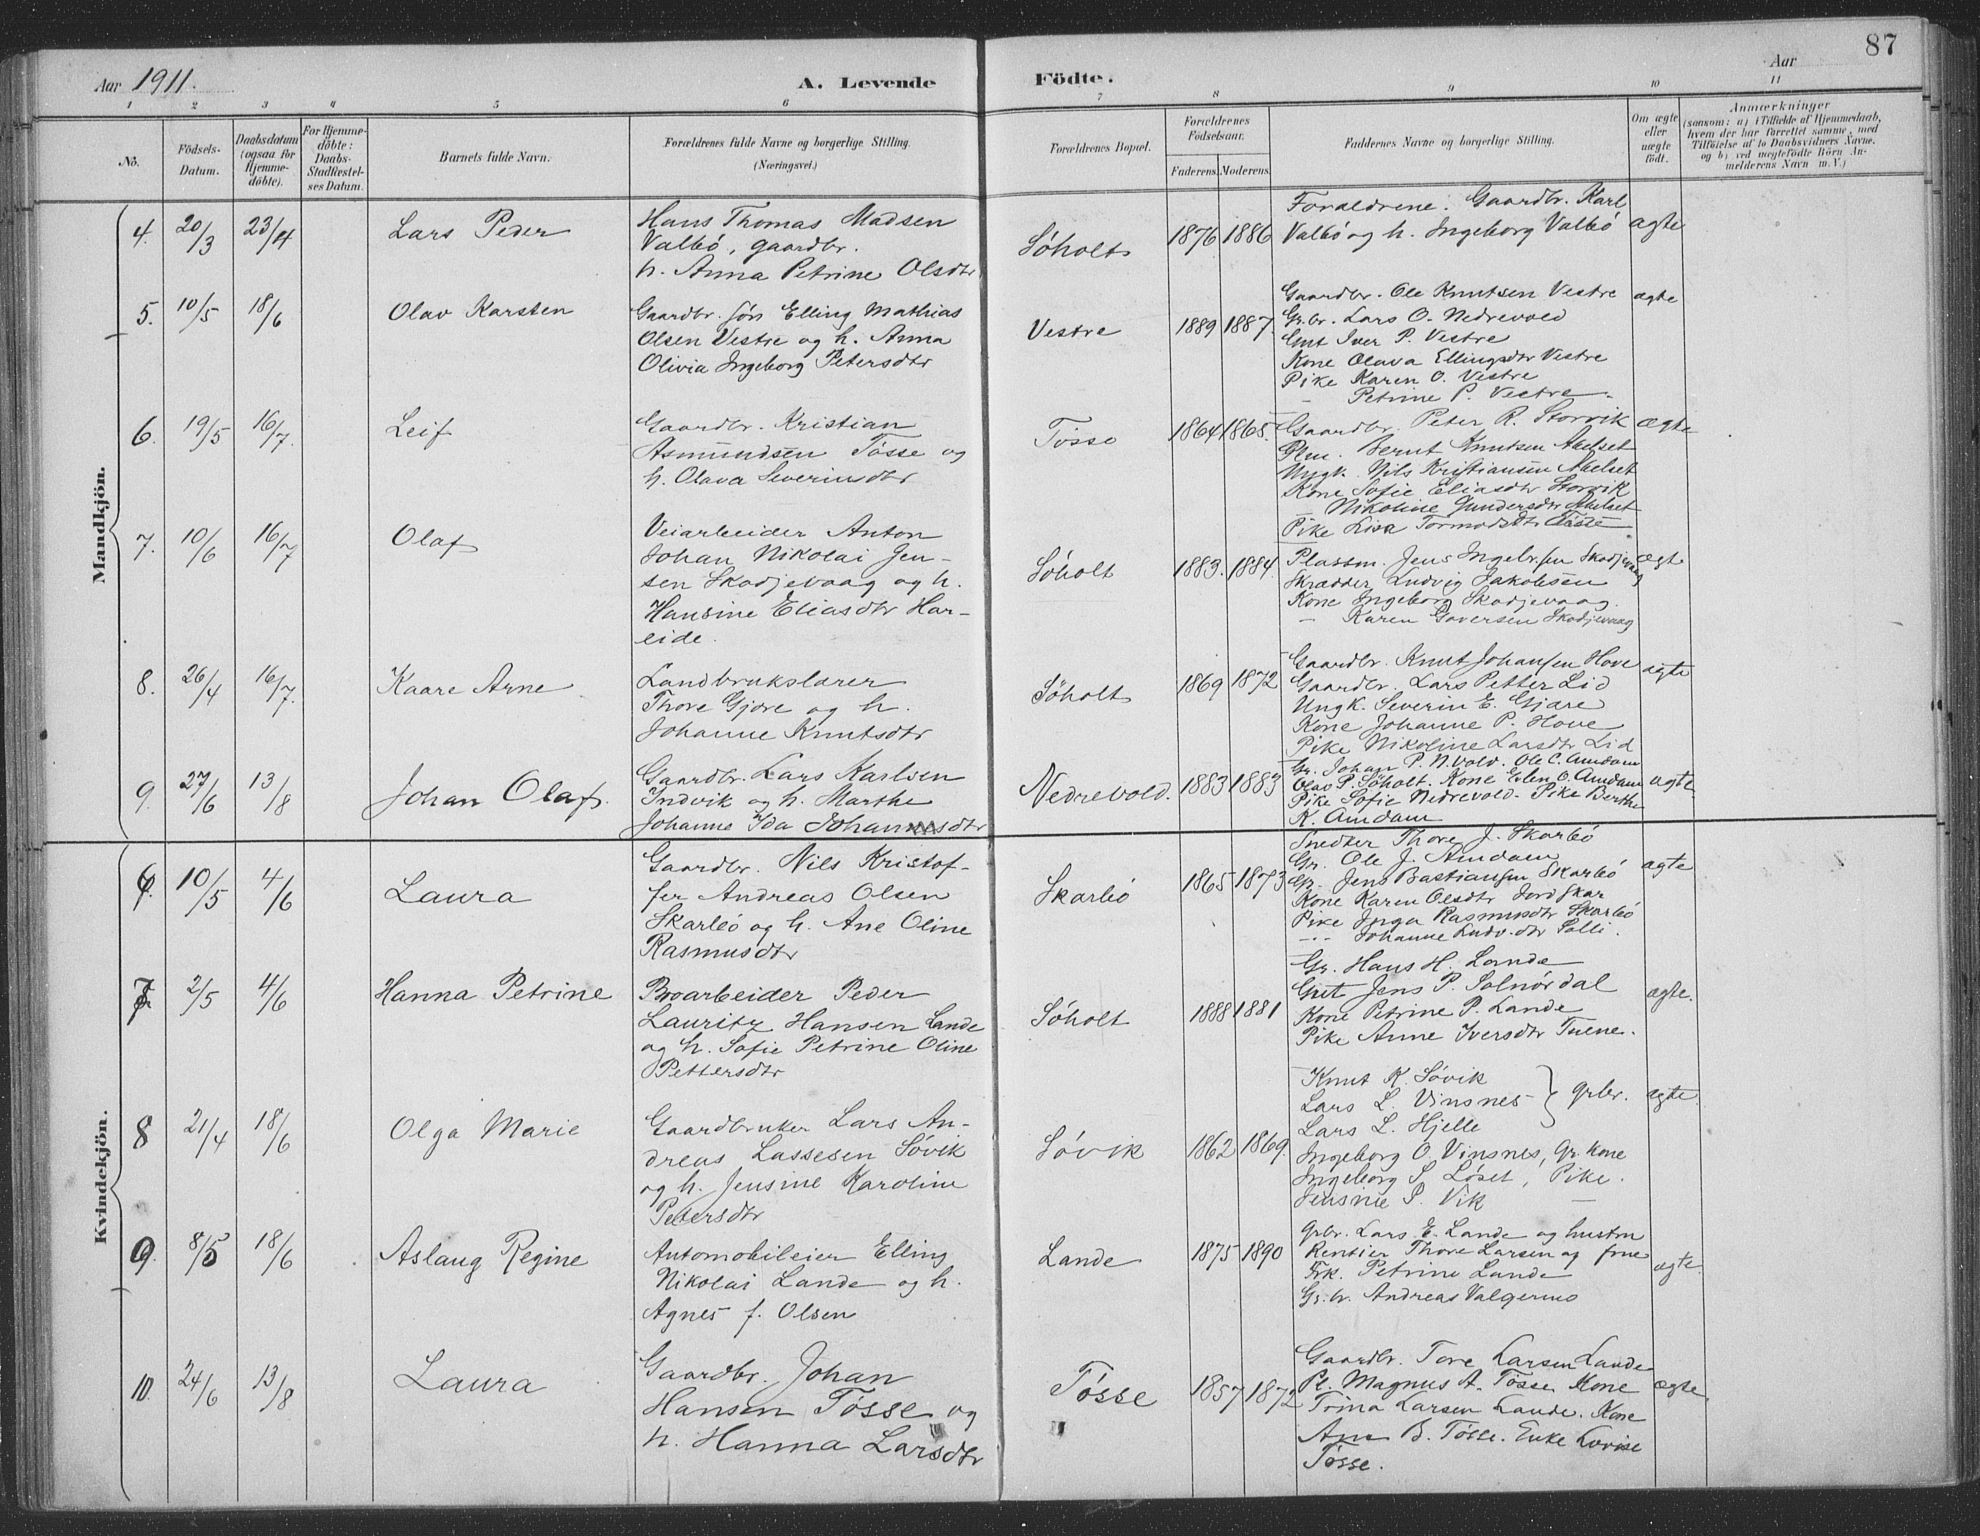 87
Aar 1911.
A. Levende Födte.
Aar
1 2 3 4 5 6 7 8 9 10 11
No.
Födsels-
Datum.
Daabsdatum
(ogsaa for
Hjemme-
döbte).
For Hjemme-
döbte:
Daabs-
Stadfæstel-
ses Datum.
Barnets fulde Navn.
Forældrenes fulde Navne og borgerlige Stilling.
(Næringsvei.)
Forældrenes Bopæl.
Forældrenes
Födselsaar.
Faderens.
Moderens.
Faddernes Navne og borgerlige Stilling.
Om ægte
eller
uægte
födt.
Anmærkninger
(saasom: a) i Tilfælde af Hjemmedaab,
hvem der har forrettet samme, med
Tilföielse af to Daabsvidners Navne,
og b) ved uægtefödte Börn An-
melderens Navn m. V.)
Mandkjön.
4. 20/3 23/4
Lars Peder
Hans Thomas Madsen
Valbö, gaardbr.
h. Anna Petrine Olsdtr
Söholt
1876 1886
Forældrene. Gaardbr. Karl
Valbö og h. Ingeborg Valbö
ægte
5. 10/5 18/6
Olav Karsten
Gaardbr. sön Elling Mathias
Olsen Vestre og h. Anna
Olivia Ingeborg Petersdtr
Vestre
1889 1887
Gaardbr. Ole Knutsen Vestre
Gr.br. Lars O. Nedrevold
Gut Iver P. Vestre
Kone Olava Ellingsdtr Vestre
Pike Karen O. Vestre
— Petrine P. Vestre.
ægte
6. 19/5 16/7.
Leif
Gaardbr. Kristian
Asmundsen Tösse og
h. Olava Severinsdtr
Tösse
1864 1865.
Gaardbr. Peter R. Storvik
Plm. Bernt Knutsen Abelset
Ungk. Nils Kristiansen Abelset
Kone Sofie Eliasdtr Storvik
— Nikoline Gundersdtr Abelset
Pike Liva Tormodsdtr Tösse
ægte
7. 10/6 16/7
Olaf
Veiarbeider Anton
Johan Nikolai Jen-
sen Skodjevaag og h.
Hansine Eliasdtr Har-
eide.
Söholt
1883. 1884.
Plassm. Jens Ingebr.sen Skodjevaag
Skrædder Ludvig Jakobsen
Kone Ingeborg Skodjevaag.
— Karen Goversen Skodjevaag
ægt
8. 26/4 16/7.
Kaare Arne
Landbrukslærer
Thore Gjöre og h.
Johanne Knutsdtr
Söholt
1869 1872
Gaardbr. Knut Johansen Hove
Gaardbr. Lars Petter Lid
Ungk. Severin E. Gjære
Kone Johanne P. Hove
Pike Nikoline Larsdtr Lid
ægte
9. 27/6 13/8
Johan Olaf.
Gaardbr. Lars Karlsen
Indvik og h. Marthe
Johanne Ida Johannesdtr
Nedrevold.
1883 1883
Gr. Johan P. N.vold. Ole C. Amdam
Olav P. Söholt. Kone Elen O. Amdam
Pike Sofie Nedrevold. Pike Berthe
K. Amdam
ægte.
Kvindekjön.
6. 10/5 4/6
Laura
Gaardbr. Nils Kristof-
fer Andreas Olsen
Skarbö og h. Ane Oline
Rasmusdtr
Skarbö
1865 1873
Snedker Thore J. Skarbö
Gr. Ole J. Amdam
Gr. Jens Bastiansen Skarbö
Kone Karen Olsdtr Jordskar
Pike Inga Rasmusdtr Skarbö
—..— Johanne Ludv.dtr Solli.
ægte
7 2/5 4/6
Hanna Petrine
Broarbeider Peder
Lauritz Hansen Lande
og h. Sofie Petrine Oline
Pettersdtr
Söholt
1888 1881
Gr. Hans H. Lande
Gut Jens P. Solnördal
Kone Petrine P. Lande
Pike Anne Iversdtr Tuene.
ægte.
8 21/4 18/6
Olga Marie
Gaardbruker Lars An-
dreas Lassesen Sövik
og h. Jensine Karoline
Petersdtr
Sövik
1862 1869.
Knut K. Sövik
Lars L. Vinsnes } grbr.
Lars L. Hjelle
Ingeborg O. Vinsnes, Gr. kone
Ingeborg S. Löset, Pike.
Jensine P. Vik —
ægte
9. 8/5 18/6
Aslaug Regine
Automobileier Elling
Nikolai Lande og h.
Agnes f. Olsen
Lande
1875 1890
Grbr. Lars E. Lande og hustru
Rentier Thore Larsen og frue
Frk. Petrine Lande
Gr.br. Andreas Valgermo
ægte.
10. 24/6 13/8
Laura
Gaardbr. Johan
Hansen Tösse og
h. Hanna Larsdtr
Tösse
1857 1872
Gaardbr. Tore Larsen Lande
Pl. Magnus A. Tösse Kone
Trina Larsen Lande. Kone
Ane B. Tösse. Enke Lovise
Tösse.
ægte